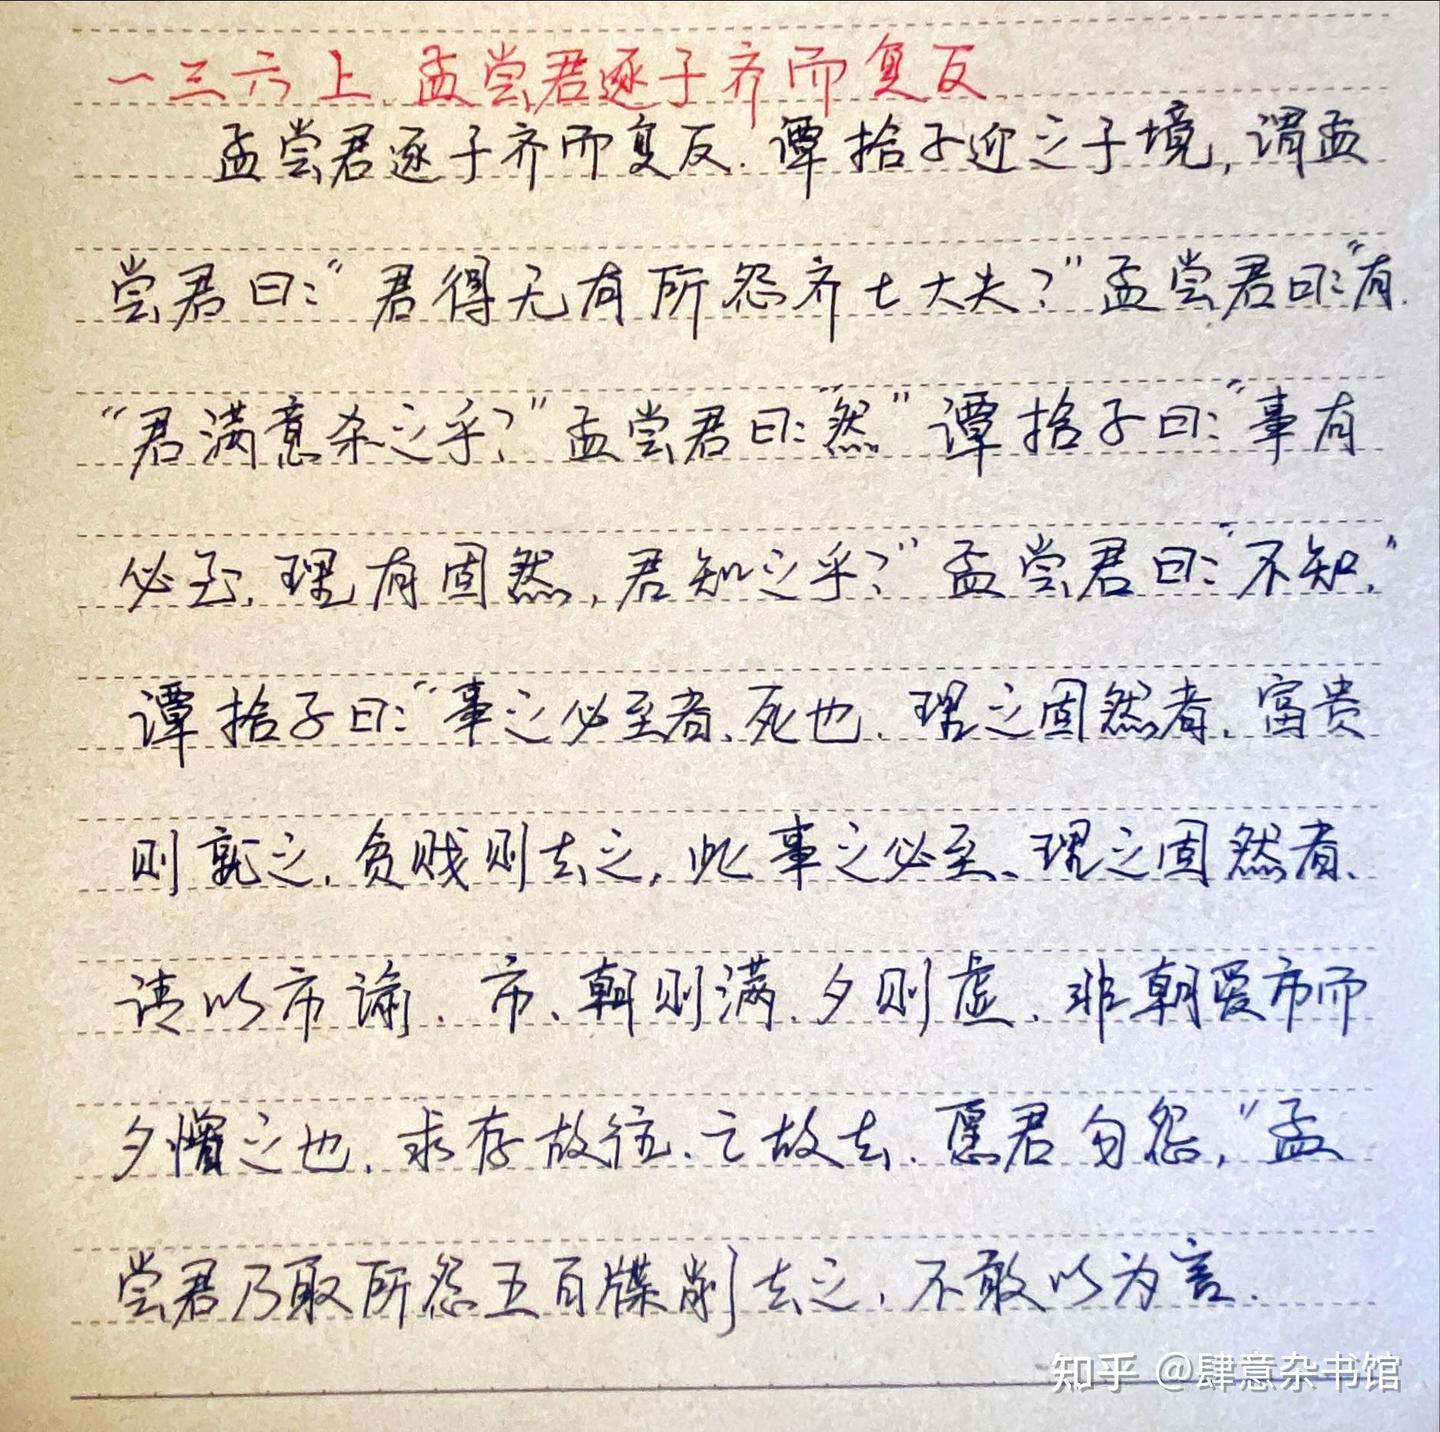 一三六上.孟尝君逐于齐而复反
孟尝君逐于齐而复反.谭拾子迎之于境,谓孟
尝君曰:“君得无有所怨齐士大夫?”孟尝君曰:“有.
“君满意杀之乎?”孟尝君曰:“然”谭拾子曰:“事有
必至,理有固然,君知之乎?”孟尝君曰:“不知.”
谭拾子曰:“事之必至者、死也.理之固然者.富贵
则就之,贫贱则去之,此事之必至、理之固然者、
请以市谕.市、朝则满、夕则虚.非朝爱市而
夕憎之也.求存故往、亡故去.愿君勿怨,”孟
尝君乃取所怨五百牒削去之,不敢以为言.
知乎 @肆意杂书馆